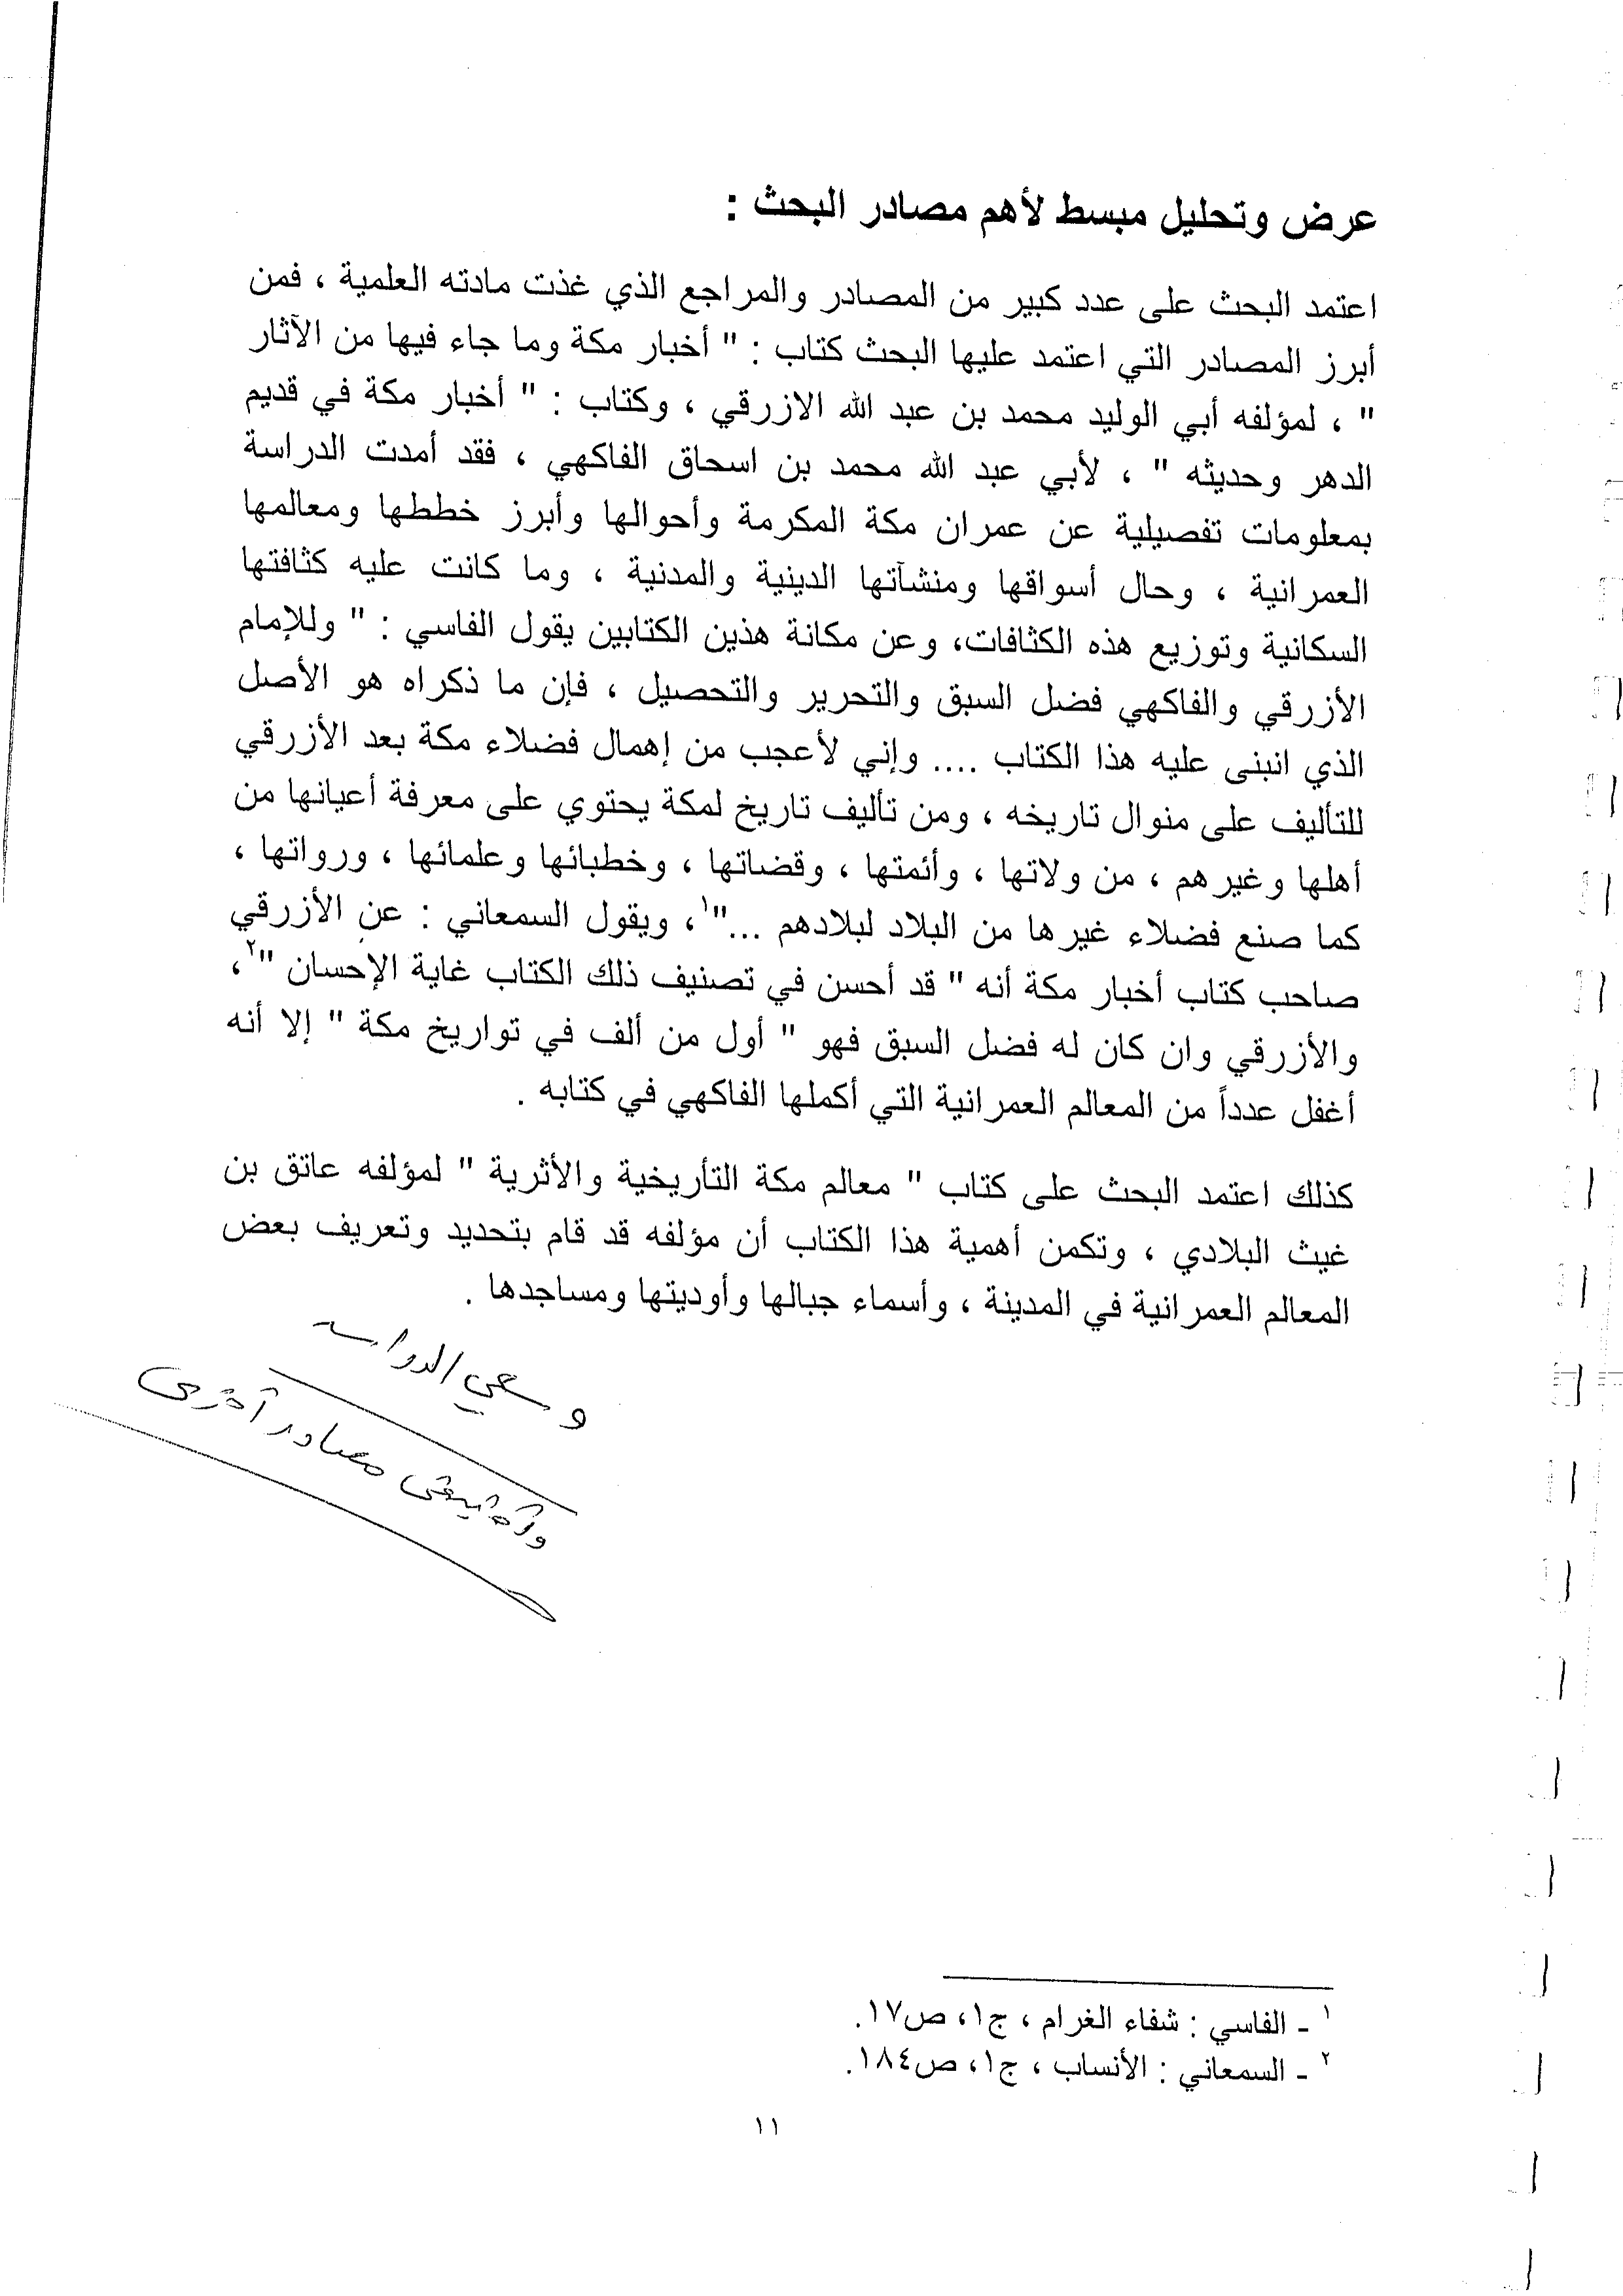 عرض وتحليل مبسط لأهم مصادر البحث :
اعتمد البحث على عدد كبير من المصادر والمراجع الذي غذت مادته العلمية ، فمن
أبرز المصادر التي اعتمد عليها البحث كتاب : " أخبار مكة وما جاء فيها من الآثار
" ، لمؤلفه أبي الوليد محمد بن عبد الله الازرقي ، وكتاب : " أخبار مكة في قديم
الدهر وحديثه " ، لأبي عبد الله محمد بن اسحاق الفاكهي ، فقد أمدت الدراسة
بمعلومات تفصيلية عن عمران مكة المكرمة وأحوالها وأبرز خططها ومعالمها
العمرانية ، وحال أسواقها ومنشآتها الدينية والمدنية ، وما كانت عليه كثافتها
السكانية وتوزيع هذه الكثافات، وعن مكانة هذين الكتابين يقول الفاسي : " وللإمام
الأزرقي والفاكهي فضل السبق والتحرير والتحصيل ، فإن ما ذكراه هو الأصل
الذي انبنى عليه هذا الكتاب .... وإني لأعجب من إهمال فضلاء مكة بعد الأزرقي
للتأليف على منوال تاريخه ، ومن تأليف تاريخ لمكة يحتوي على معرفة أعيانها من
أهلها وغيرهم ، من ولاتها ، وأئمتها ، وقضاتها ، وخطبائها وعلمائها ، ورواتها ،
كما صنع فضلاء غيرها من البلاد لبلادهم ..."١، ويقول السمعاني : عن الأزرقي
صاحب كتاب أخبار مكة أنه " قد أحسن في تصنيف ذلك الكتاب غاية الإحسان "٢،
والأزرقي وان كان له فضل السبق فهو " أول من ألف في تواريخ مكة " إلا أنه
أغفل عدداً من المعالم العمرانية التي أكملها الفاكهي في كتابه .
كذلك اعتمد البحث على كتاب " معالم مكة التأريخية والأثرية " لمؤلفه عاتق بن
غيث البلادي ، وتكمن أهمية هذا الكتاب أن مؤلفه قد قام بتحديد وتعريف بعض
المعالم العمرانية في المدينة ، وأسماء جبالها وأوديتها ومساجدها .
مصادر أخرى
١ - الفاسي : شفاء الغرام ، ج١، ص١٧.
٢ - السمعاني : الأنساب ، ج١، ص١٨٤.
١١